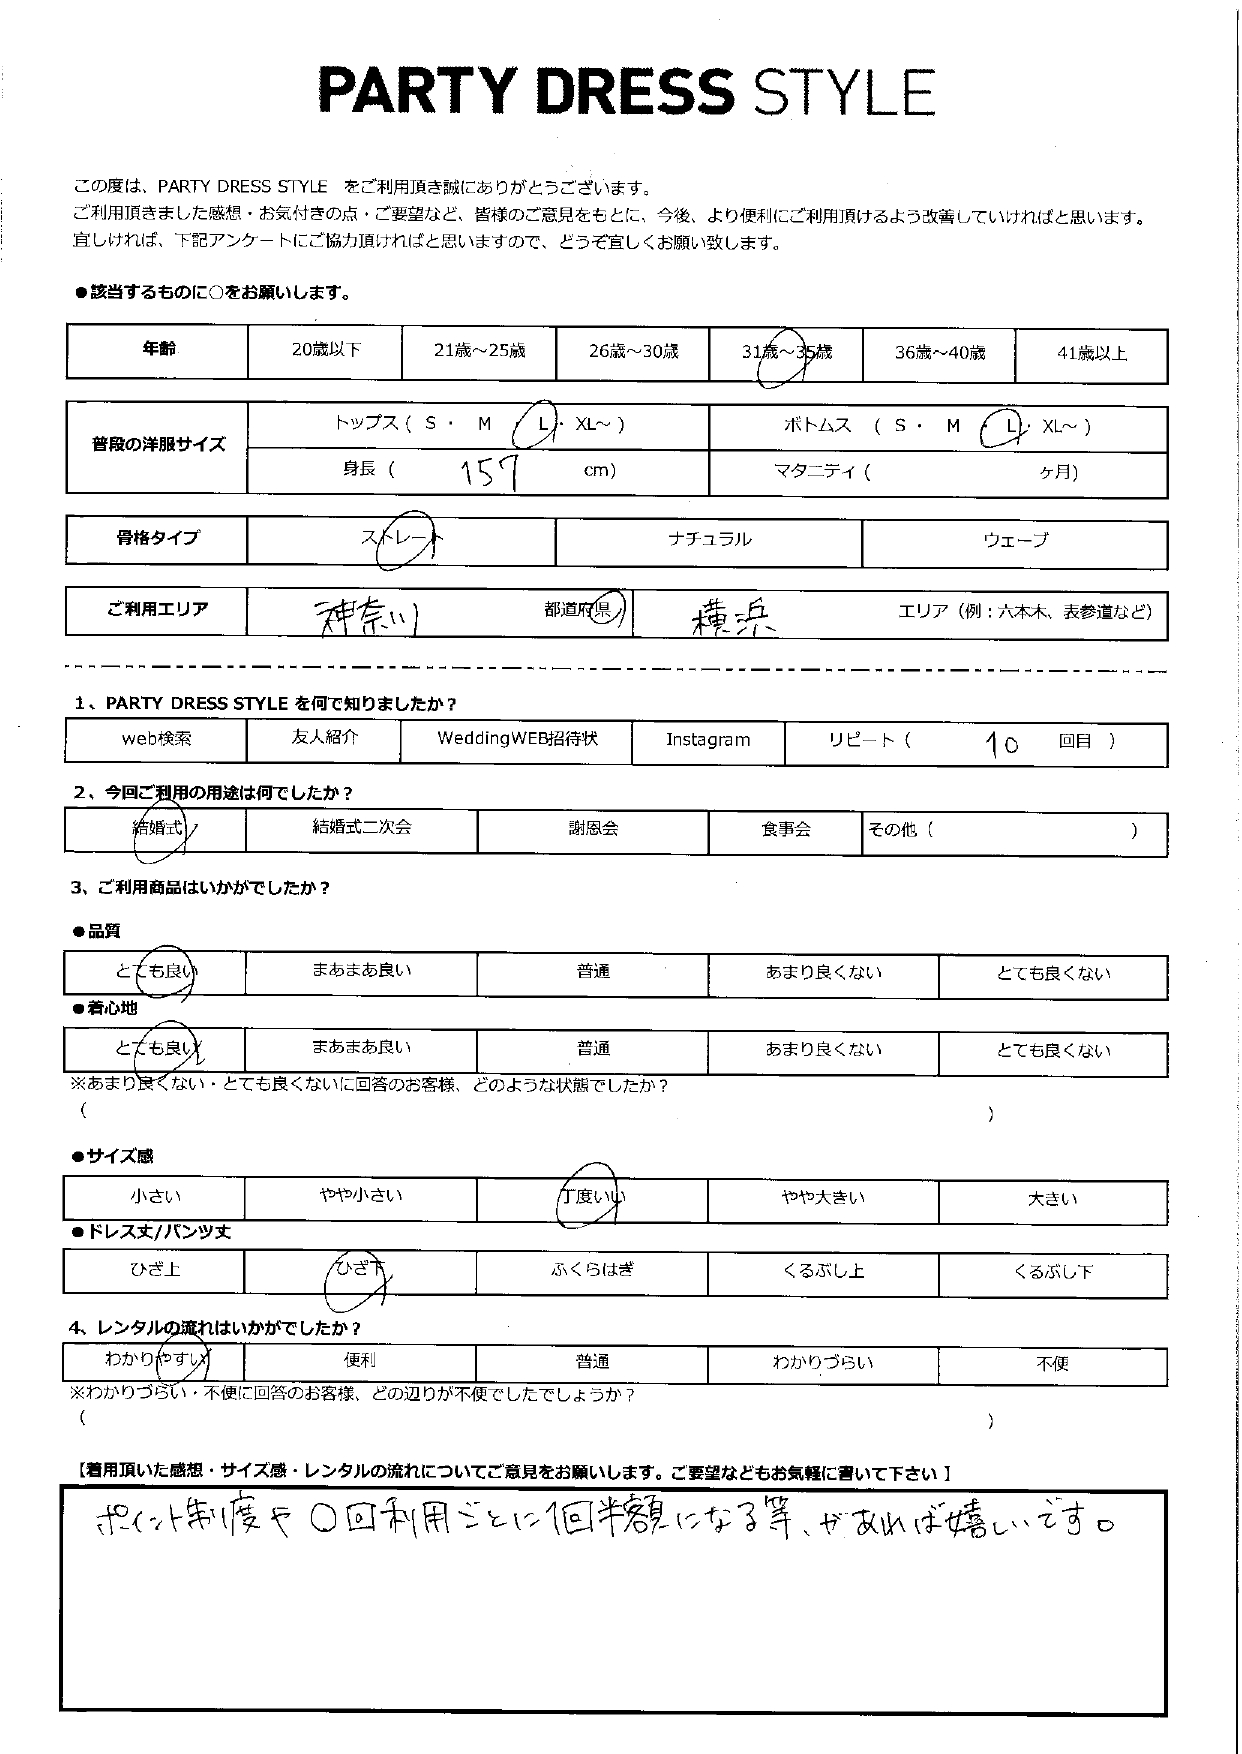 PARTY DRESS STYLE
この度は、PARTY DRESS STYLE をご利用頂き誠にありがとうございます。
ご利用頂きました感想・お気付きの点・ご要望など、皆様のご意見をもとに、今後、より便利にご利用頂けるよう改善していければと思います。
宜しければ、下記アンケートにご協力頂ければと思いますので、どうぞ宜しくお願い致します。
●該当するものに○をお願いします。
年齢 20歳以下 21歳～25歳 26歳～30歳 31歳～35歳 36歳～40歳 41歳以上
普段の洋服サイズ トップス ( S ・ M ・ L ・ XL～ ) ボトムス ( S ・ M ・ L ・ XL～ )
身長 ( 157 cm) マタニティ ( ヶ月)
骨格タイプ ストレート ナチュラル ウェーブ
ご利用エリア 神奈川 都道府県 横浜 エリア（例：六本木、表参道など）
1、PARTY DRESS STYLE を何で知りましたか？
web検索 友人紹介 WeddingWEB招待状 Instagram リピート ( 10 回目 )
2、今回ご利用の用途は何でしたか？
結婚式 結婚式二次会 謝恩会 食事会 その他 ( )
3、ご利用商品はいかがでしたか？
●品質
とても良い まあまあ良い 普通 あまり良くない とても良くない
●着心地
とても良い まあまあ良い 普通 あまり良くない とても良くない
※あまり良くない・とても良くないに回答のお客様、どのような状態でしたか？
( )
●サイズ感
小さい やや小さい 丁度いい やや大きい 大きい
●ドレス丈/パンツ丈
ひざ上 ひざ下 ふくらはぎ くるぶし上 くるぶし下
4、レンタルの流れはいかがでしたか？
わかりやすい 便利 普通 わかりづらい 不便
※わかりづらい・不便に回答のお客様、どの辺りが不便でしたでしょうか？
( )
【着用頂いた感想・サイズ感・レンタルの流れについてご意見をお願いします。ご要望などもお気軽に書いて下さい】
ポイント制度や〇回利用ごとに1回半額になる等、があれば嬉しいです。